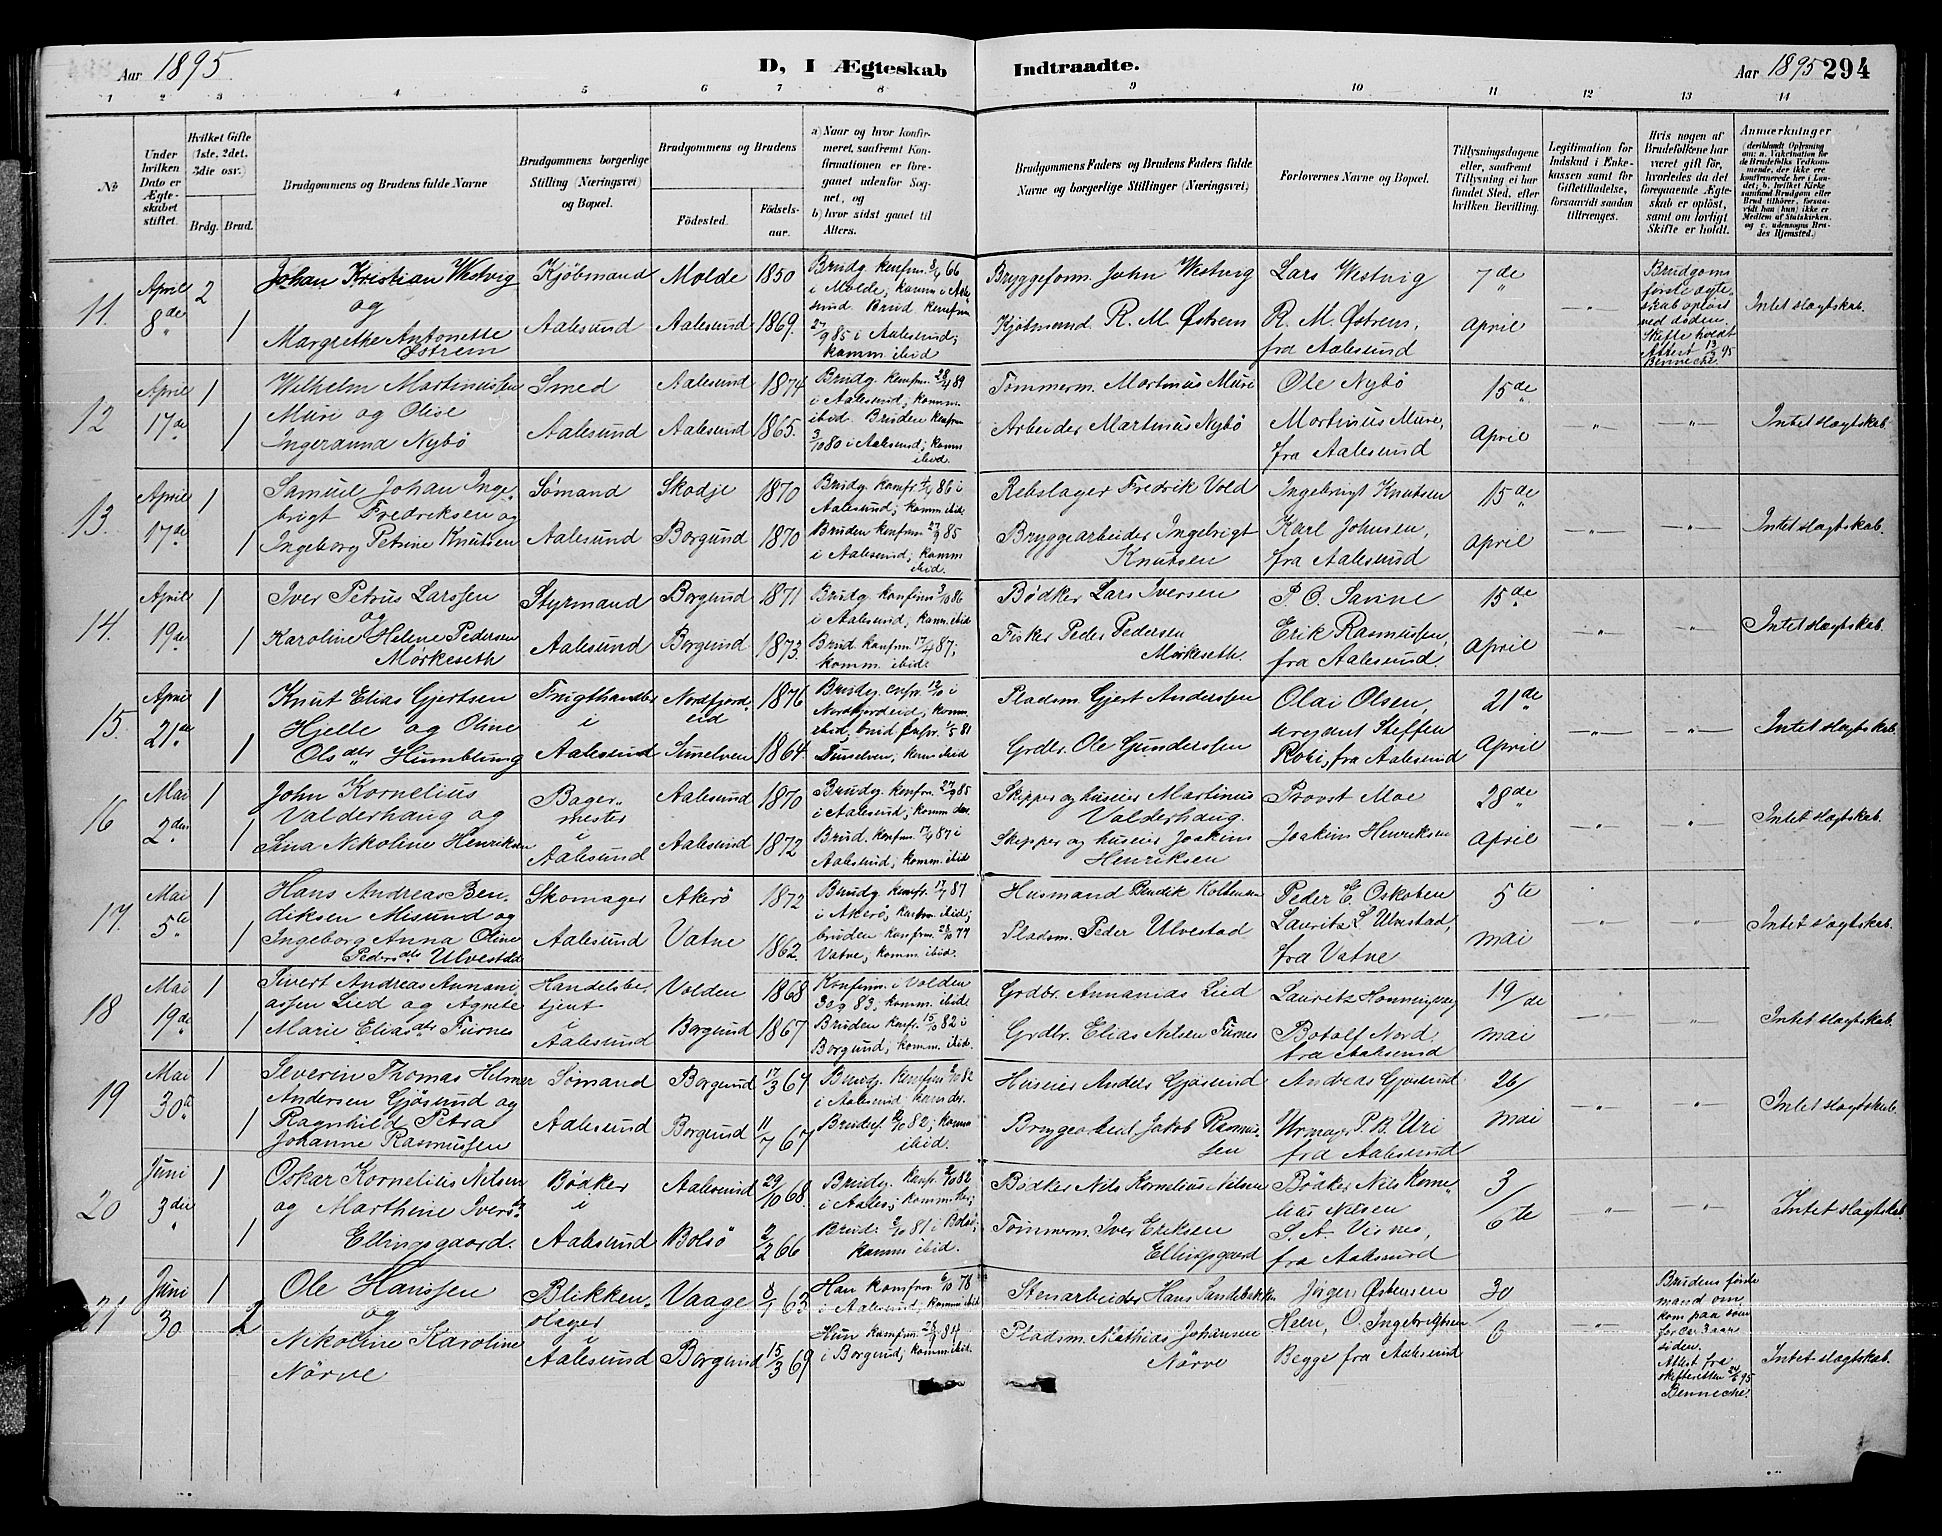 Aar 1895.
D, I Ægteskab Indtraadte.
Aar 1895 294
1 2 3 4 5 6 7 8 9 10 11 12 13 14
№
Under hvilken Dato er Ægteskabet stiftet.
Hvilket Gifte (1ste, 2det, 3die osv.)
Brdg. Brud.
Brudgommens og Brudens fulde Navne
Brudgommens borgerlige Stilling (Næringsvei) og Bopæl.
Brudgommens og Brudens
Fødested. Fødselsaar.
a) Naar og hvor konfirmeret, saafremt Konfirmationen er foregaaet udenfor Sognet, og
b) hvor sidst gaaet til Alters.
Brudgommens Faders og Brudens Faders fulde Navne og borgerlige Stillinger (Næringsvei)
Forlovernes Navne og Bopæl.
Tillysningsdagene eller, saafremt Tillysning ei har fundet Sted, efter hvilken Bevilling.
Legitimation for Indskud i Enkekassen samt for Giftetilladelse, forsaavidt saadan tiltrænges.
Hvis nogen af Brudefolkene har været gift før, hvorledes da det foregaaende Ægteskab er opløst, samt om lovligt Skifte er holdt.
Anmærkninger (deriblandt Oplysning om: a. Vakcination for de Brudefolks Vedkommende, der ikke ere konfirmerede her i Landet; b. hvilket Kirkesamfund Brudgom eller Brud tilhører, forsaavidt han (hun) ikke er Medlem af Statskirken, og c. udensogns Brudes Hjemsted.)
11. April 8de 2 1
Johan Kristian Westvig
og
Margrethe Antonette
Østrem
Kjøbmand
Aalesund
Molde 1850
Aalesund 1869.
Brudg. konfirm. 8/4 66
i Molde; komm. i Aalesund Brud konfirm
27/9 85 i Aalesund;
komm. ibid
Bryggeform. John Westvig
Kjøbmand R. M. Østrem
Lars Westvig
R. M. Østrem,
fra Aalesund
7de
April
Brudgoms
første ægteskab opløst
ved døden
Skifte holdt
Attest 13/3 95
Benneche.
Intet slægtskab.
12 April 17de 1 1
Wilhelm Martinussen
Muri og Olive
Ingeranna Nybø
Smed
Aalesund
Aalesund 1874
Aalesund 1865.
Brudg. konfirm. 28/4 89
i Aalesund; komm.
ibid. Bruden konfirm
3/10 80 i Aalesund; komm
ibid.
Tømmerm. Martinus Muri
Arbeider Martinus Nybø
Ole Nybø
Martinus Mure,
fra Aalesund
15de
April
Intet slægtskab.
13. April 17de 1 1
Samuel Johan Ingebrigt Fredriksen og
Ingeborg Petrine Knutsen
Sømand
Aalesund
Skodje 1870
Borgund 1870
Brudg. konfr. 4/4 86 i
Aalesund; komm. ibid.
Bruden konfirm 27/9 85
i Aalesund; komm
ibid.
Rebslager Fredrik Vold
Bryggearbeider Ingebrigt
Knutsen
Ingebrigt Knutsen
Karl Johnsen,
fra Aalesund
15de
April
Intet slægtskab.
14. April 19de 1 1
Iver Petrus Larssen
og
Karoline Helene Pedersen
Mørkeseth
Styrmand
Aalesund
Borgund 1871
Borgund 1873.
Brudg. konfirm 3/10 86
i Aalesund; komm. ibid
Brud. konfirm. 17/4 87;
komm. ibid.
Bødker Lars Iversen
Fisker Peder Pedersen
Mørkeseth.
P. O. Savine
Erik Rasmussen,
fra Aalesund.
15de
April
Intet slægtskab.
15. April 21de 1 1
Knut Elias Gjertsen
Hjelle og Oline
Olsdtr Humblung
i
Aalesund
Nordfjordeid 1876
Sunelven 1864.
Nordfjordeid; komm.
Pladsm. Gjert Andersen
Grdbr. Ole Gundersen
Olai Olsen,
sergeant Steffen
fra Aalesund
21de
April
Intet slægtskab.
16 Mai 2den 1 1
John Kornelius
Valderhaug og
Sina Nikoline Henriksen
Bagermester
i
Aalesund
Aalesund 1870
Aalesund 1872
Brudg. konfirm. 27/9 85
i Aalesund; komm. der.
Brud. konfirm. 17/4 87 i
Aalesund; komm. ibid
Skipper og huseier Martinus
Valderhaug.
Skipper og huseier Joakim
Henriksen
Provst Moe
Joakim Henriksen
28de
April
Intet slægtskab.
17. Mai 5te 1 1
Hans Andreas Bendiksen Misund og
Ingeborg Anna Oline
Pedersdtr Ulvestad
Skomager
Aalesund
Akerø 1872
Vatne 1862.
Brudg. konfr. 17/4 87
i Akerø; komm. ibid;
bruden konfirm. 28/10 77
Vatne; komm. ibid.
Husmand Bendik
Pladsm. Peder Ulvestad
Peder E.
Laurits L. Ulvestad,
fra Vatne
5te
Mai
Intet slægtskab.
18 Mai 19de 1 1
Sivert Andreas Annaniassen Lied og Agnete
Marie Eliasdtr Furnes
Handelsbetjent
i
Aalesund
Volden 1868
Borgund 1867
Konfirm. i Volden
30/9 83. komm. ibid
Bruden konfr. 15/10 82 i
Borgund; komm. ibid.
Grdbr. Annanias Lied
Grdbr. Elias Nilsen Furnes
Lauritz Honningsvåg
Botolf Nord
fra Aalesund
19/de
Mai
Intet slægtskab.
19 Mai 30te 1 1
Severin Thomas Helmer
Andersen Gjøsund og
Ragnhild Petra
Johanne Rasmussen
Sømand
Aalesund
Borgund 17/3 67
Borgund 11/7 67
i Aalesund komm der.
Bruden 82; komm
ibid.
Huseier Anders Gjøsund
Jakob Rasmussen
Andreas Gjøsund
Urmager P. B. Uri
fra Aalesund
26/
Mai
Intet slægtskab
20 Juni 3die 1 1
Oskar Kornelius Nilsen
og Marthine Iversdtr
Ellingsgaard.
Bødker
i
Aalesund
Aalesund 29/10 68.
Bolsø 2/2 66
Brudg. konfr. 2/10 82
i Aales; komm. der;
Brud. 2/10 81 i Bolsø;
komm ibid.
Bødker Nils Kornelius Nilsen
Tømmerm. Iver Eriksen
Ellingsgaard
Bødker Nils Kornelius Nilsen
S. A. Visnes,
fra Aalesund
3/
6te
Intet slægtskab.
21 Juni 30 1 2
Ole Hanssen
og
Nikoline Karoline
Nørve
Blikkenslager
i
Aalesund
Vaage 8/1 63
Borgund 15/3 69
Han konfirm. 6/10 78
i Aalesund; komm ibid
Hun konfirm. 28/9 84
i Borgund; komm ibid.
Stenarbeider Hans Sandebakken
Pladsm. Mathias Johansen
Nørve
Jørgen Østensen
Heen, O. Ingebrigtsen
Begge fra Aalesund
30
6
Brudens første
mand omkom paa søen
for ca. 3 aar
siden.
Attest fra
skifteretten 24/6 95
Benneche.
Intet slægtskab.